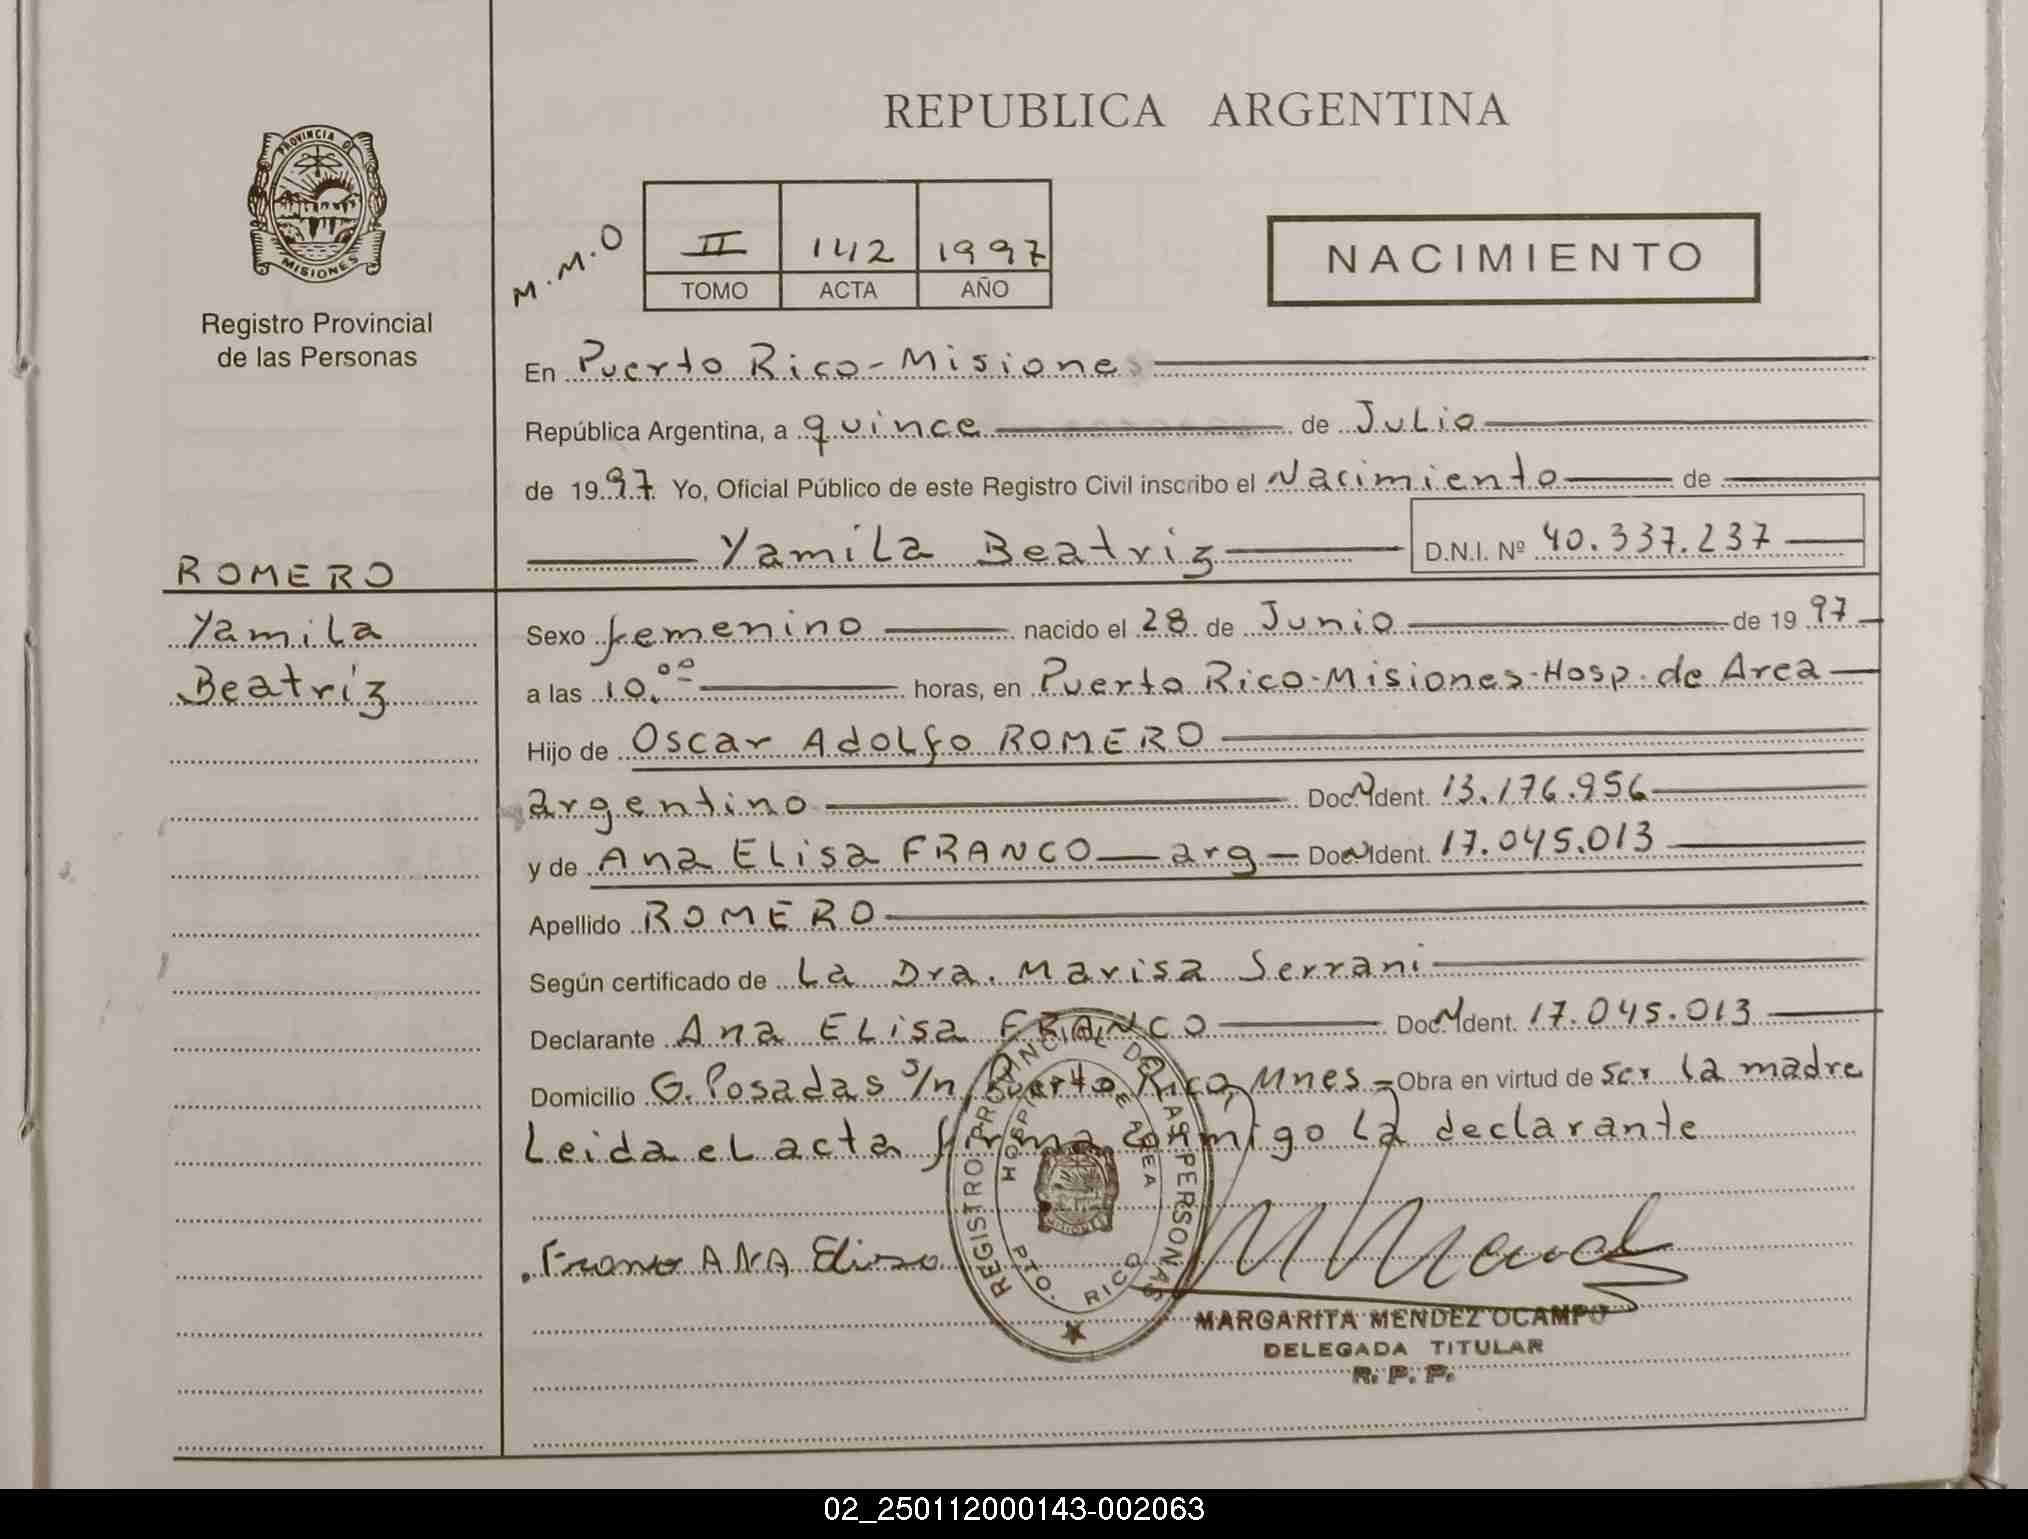 REPUBLICA ARGENTINA
PROVINCIA DE
MISIONES
Registro Provincial
de las Personas
M.M.O
II 142 1997
TOMO ACTA AÑO
NACIMIENTO
En Puerto Rico-Misiones
República Argentina, a quince de Julio
de 1997. Yo, Oficial Público de este Registro Civil inscribo el Nacimiento de
Yamila Beatriz D.N.I. Nº 40.337.237
ROMERO
Yamila
Beatriz
Sexo femenino nacido el 28 de Junio de 1997
a las 10.00 horas, en Puerto Rico-Misiones-Hosp. de Area
Hijo de Oscar Adolfo ROMERO
argentino Doc. N Ident. 13.176.956
y de Ana Elisa FRANCO arg Doc. N Ident. 17.045.013
Apellido ROMERO
Según certificado de La Dra. Marisa Serrani
Declarante Ana Elisa FRANCO Doc. N Ident. 17.045.013
Domicilio G. Posadas s/n, Puerto Rico, Mnes = Obra en virtud de ser la madre
Leida el acta firma conmigo la declarante
REGISTRO PROVINCIAL DE LAS PERSONAS
HOSPITAL DE AREA
PTO. RICO
Franco ANA Elisa
MARGARITA MENDEZ OCAMPO
DELEGADA TITULAR
R. P. P.
02_250112000143-002063